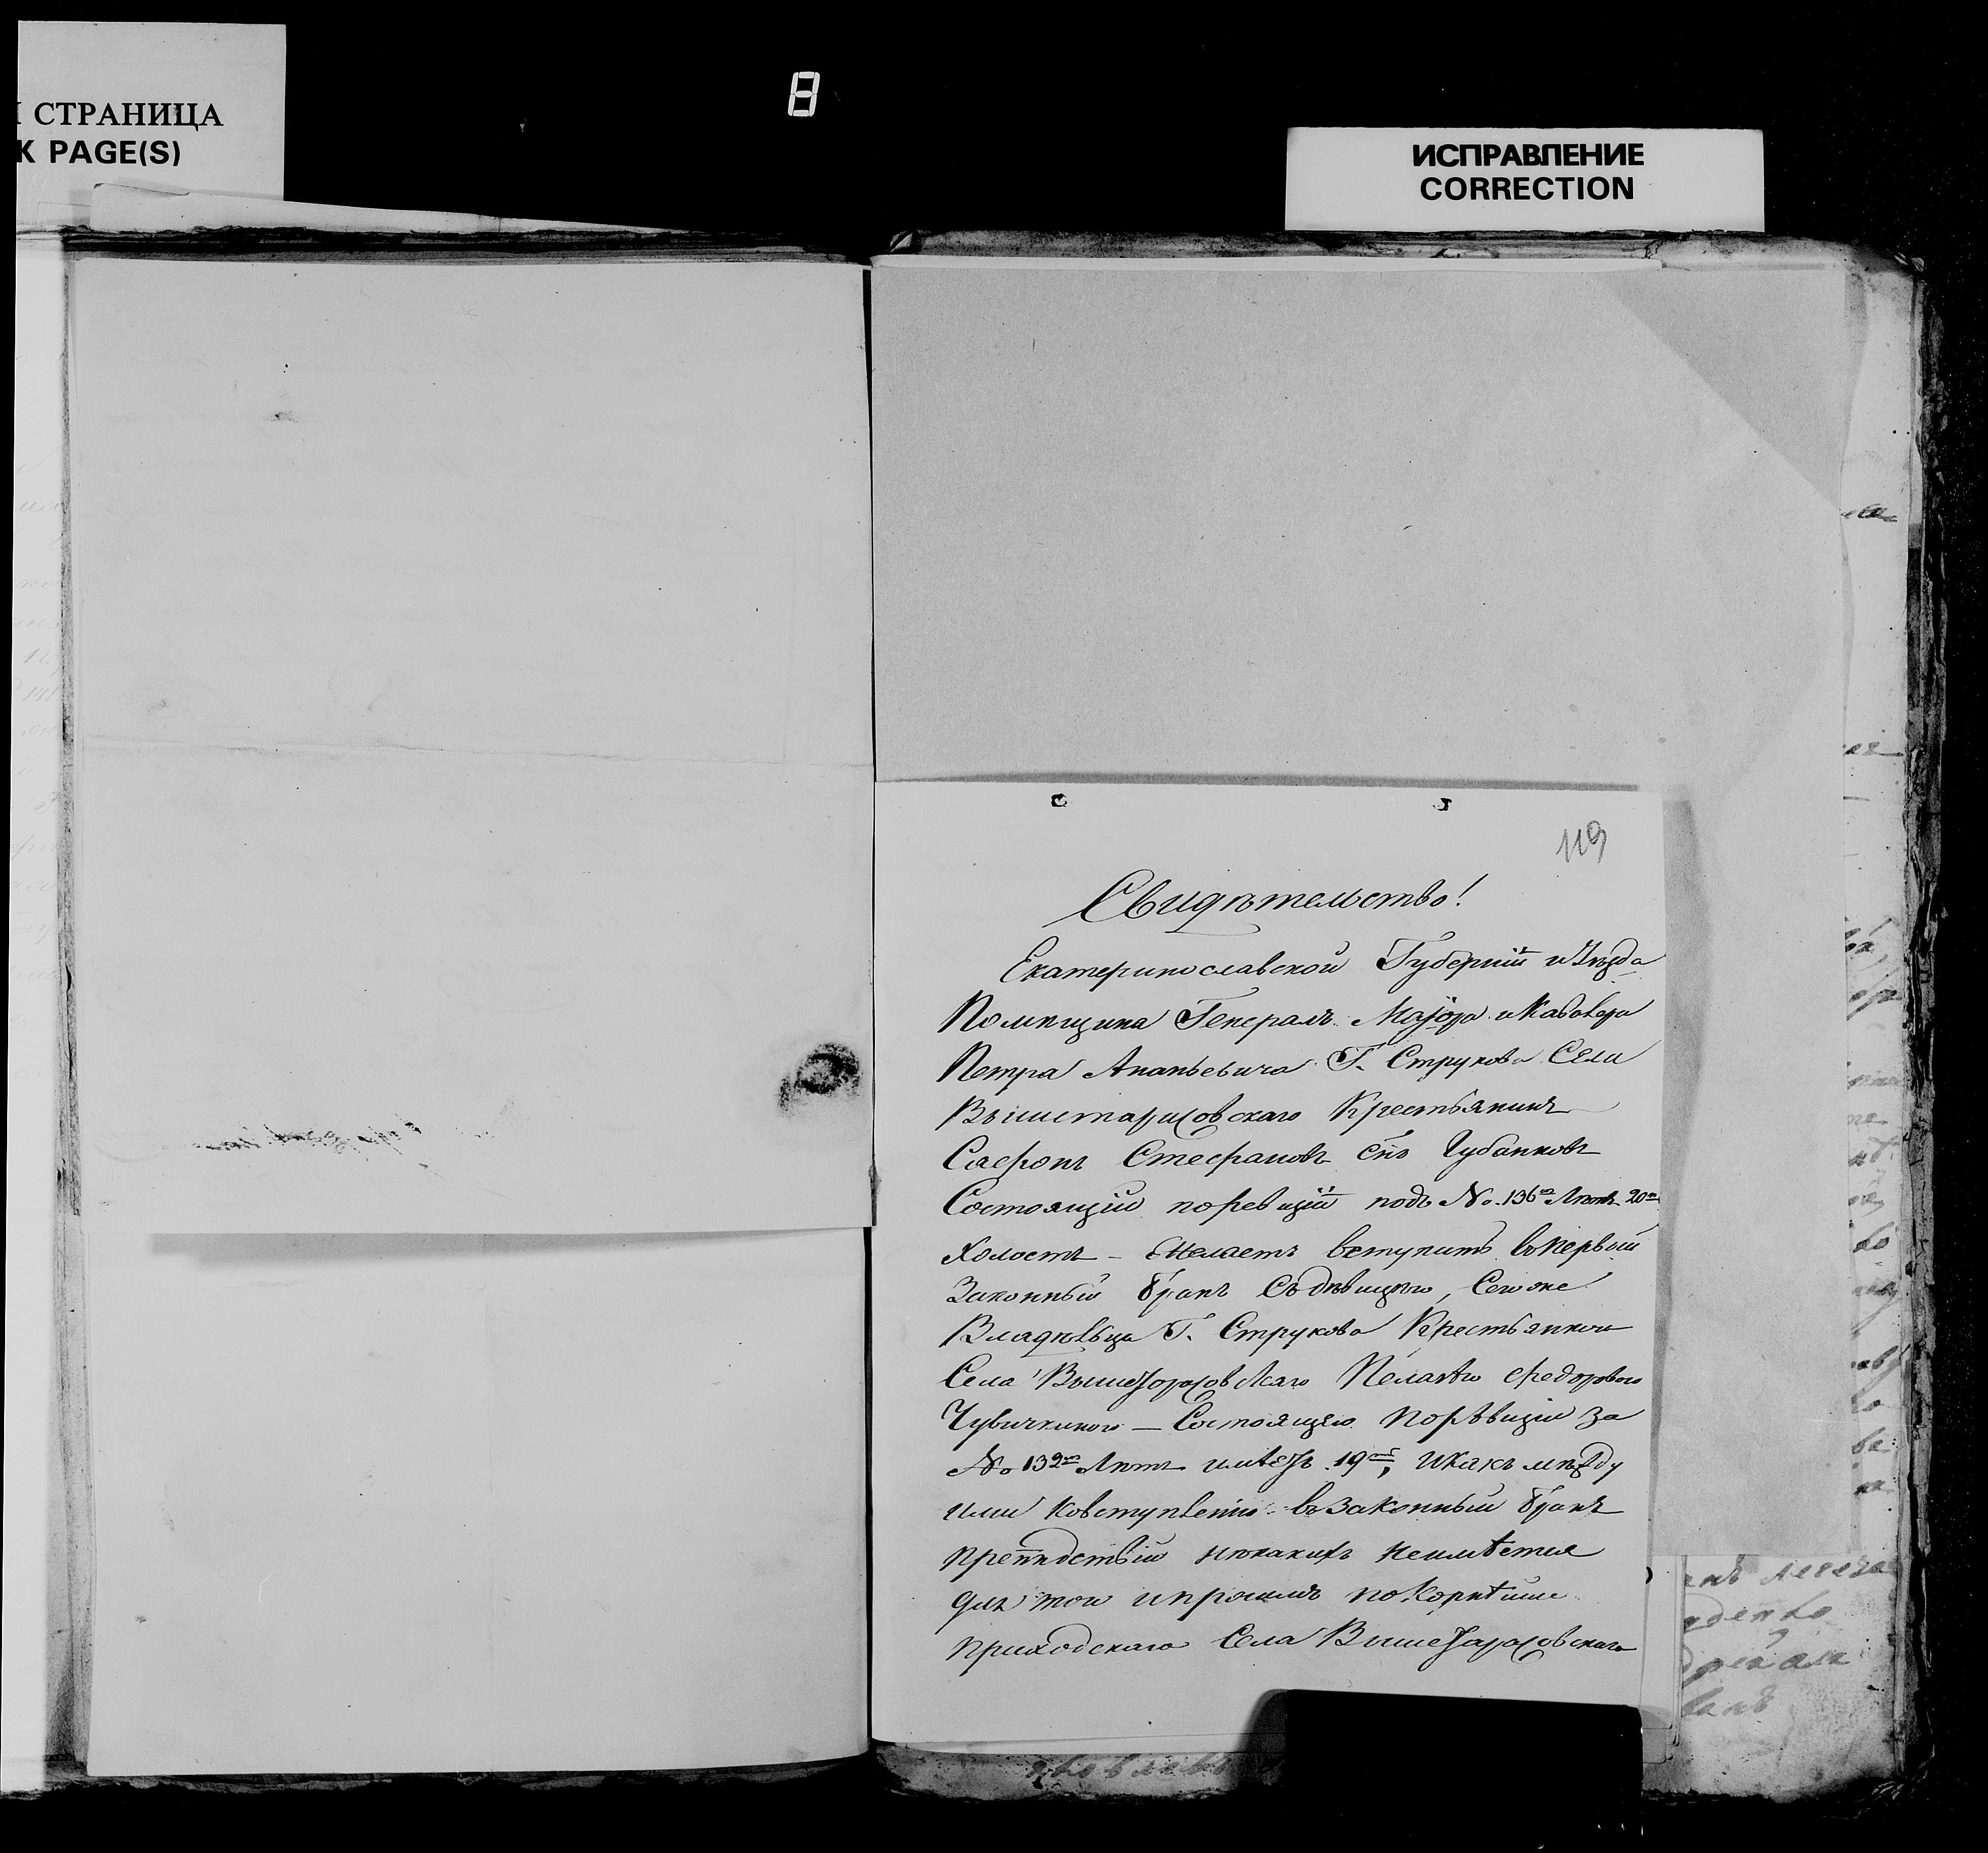 СТРАНИЦА
K PAGE(S)
8
ИСПРАВЛЕНИЕ
CORRECTION
119
Свидѣтельство!
Екатеринославской Губерніи и Уѣзда
Помѣщика Генералъ Маіора и Кавалера
Петра Ананьевича Г. Струкова Села
Вышетарасовскаго Крестьянинъ
Сафонъ Стефановъ Снъ Чубанковъ
Состоящій поревизіи подъ No. 136 Лѣтъ 20
Холостъ – Желаетъ вступить въ первый
Законный бракъ Съ дѣвицею, Сегоже
Владѣльца Г. Струкова Крестьянкою
Села Вышетарасовскаго Пелагѣю Федоровою
Чубичкиною – Состоящею Порѣвизіи За
No 132 Лѣтъ имѣетъ 19, Икакъ между
ими ковступленію въ законный бракъ
препядствій никакихъ неимѣтся
для того ипросимъ покорнѣйше
приходскаго Села Вышетарасовскаго